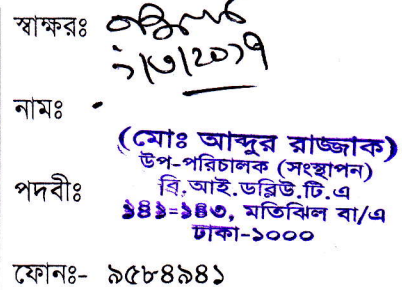 স্বাক্ষরঃ
২/৩/২০১৭
নামঃ
(মোঃ আব্দুর রাজ্জাক)
উপ-পরিচালক (সংস্থাপন)
পদবীঃ বি.আই.ডব্লিউ.টি.এ
১৪১=১৪৩, মতিঝিল বা/এ
ঢাকা-১০০০
ফোনঃ- ৯৫৮৪৯৪১